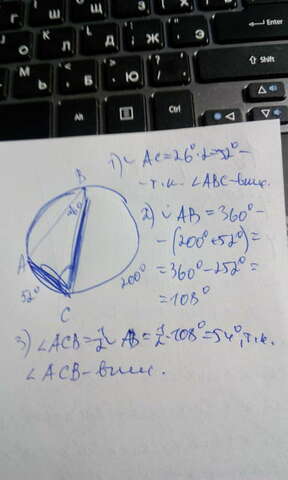 Г Ш Щ З
О Л Д Ж Э Enter
Ь Б Ю / Shift
Alt Ctrl
1) ◡ AC = 26° · 2 = 52° –
– т.к. ∠ABC – впис.
B
26°
2) ◡ AB = 360° –
– (200° + 52°) =
= 360° – 252° =
= 108°
A
52°
200°
C
3) ∠ACB = 1/2 ◡ AB = 1/2 · 108° = 54°, т.к.
∠ACB – впис.